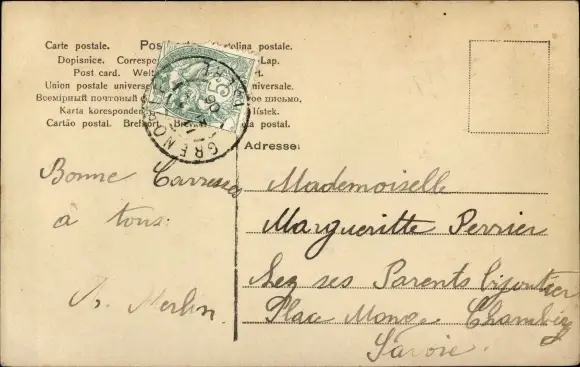 Carte postale. Post
olina postale.
Dopisnice. Corresp
Lap.
Post card. Welt
rt.
Union postale univers
universale.
Всемірный почтовый
ое письмо.
Karta korespondén
lístek.
Cartão postal. Bref
a postal.
GRENOBLE
Adresse:
Bonne Caresses
à tous:
Merlin.
Mademoiselle
Margueritte Perrier
ses Parents bijoutier
Place Monge Chambéry
Savoie.